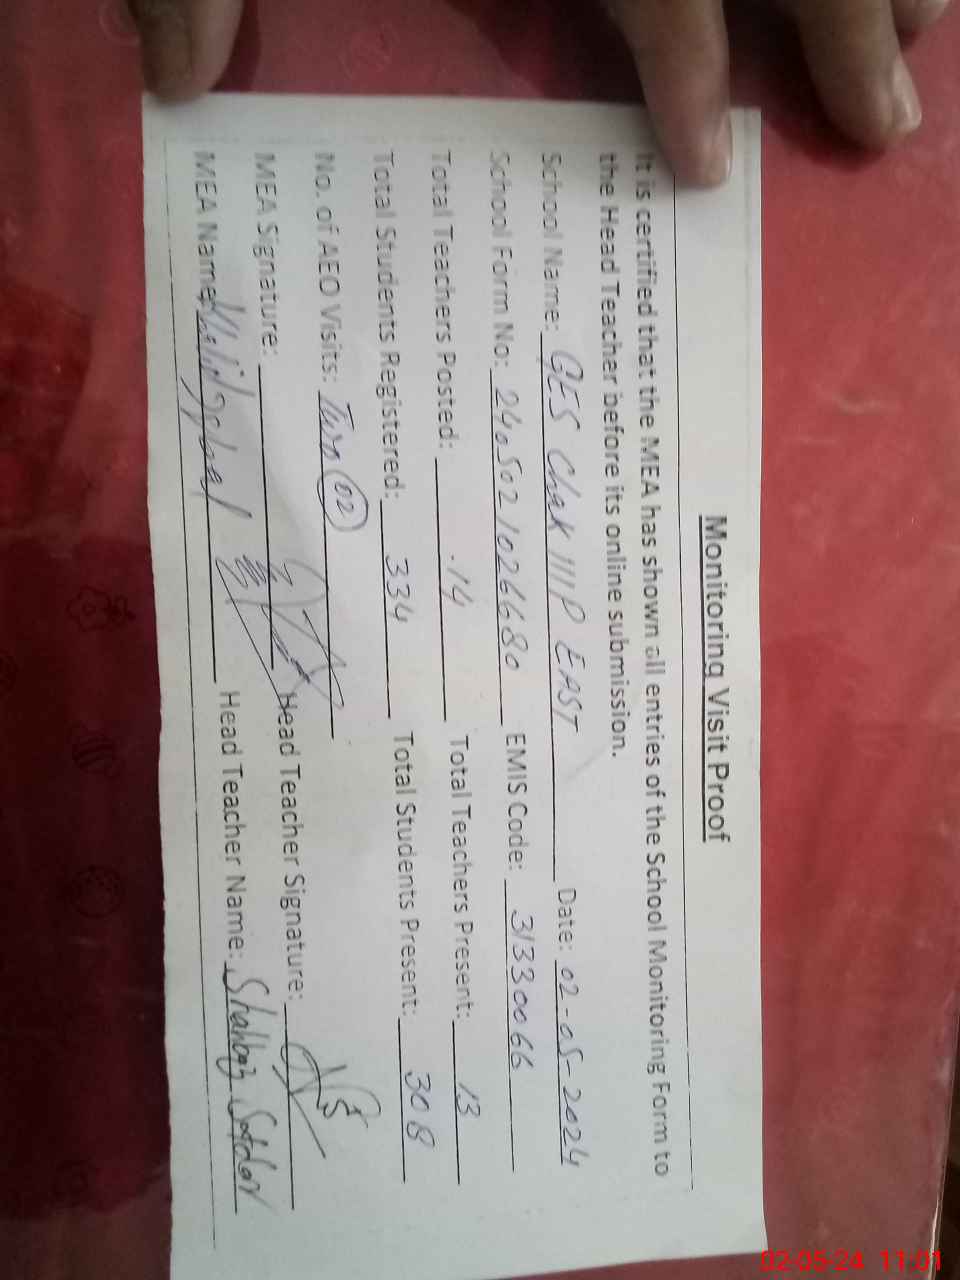 Monitoring Visit Proof
It is certified that the MEA has shown all entries of the School Monitoring Form to
the Head Teacher before its online submission.
School Name: GES Chak 111P EAST Date: 02-05-2024
School Form No: 2405021026680 EMIS Code: 31330066
Total Teachers Posted: 14 Total Teachers Present: 13
Total Students Registered: 334 Total Students Present: 308
No. of AEO Visits: Two 02
MEA Signature: Head Teacher Signature:
MEA Name: Head Teacher Name: Shahbaz
02-05-24 11:01